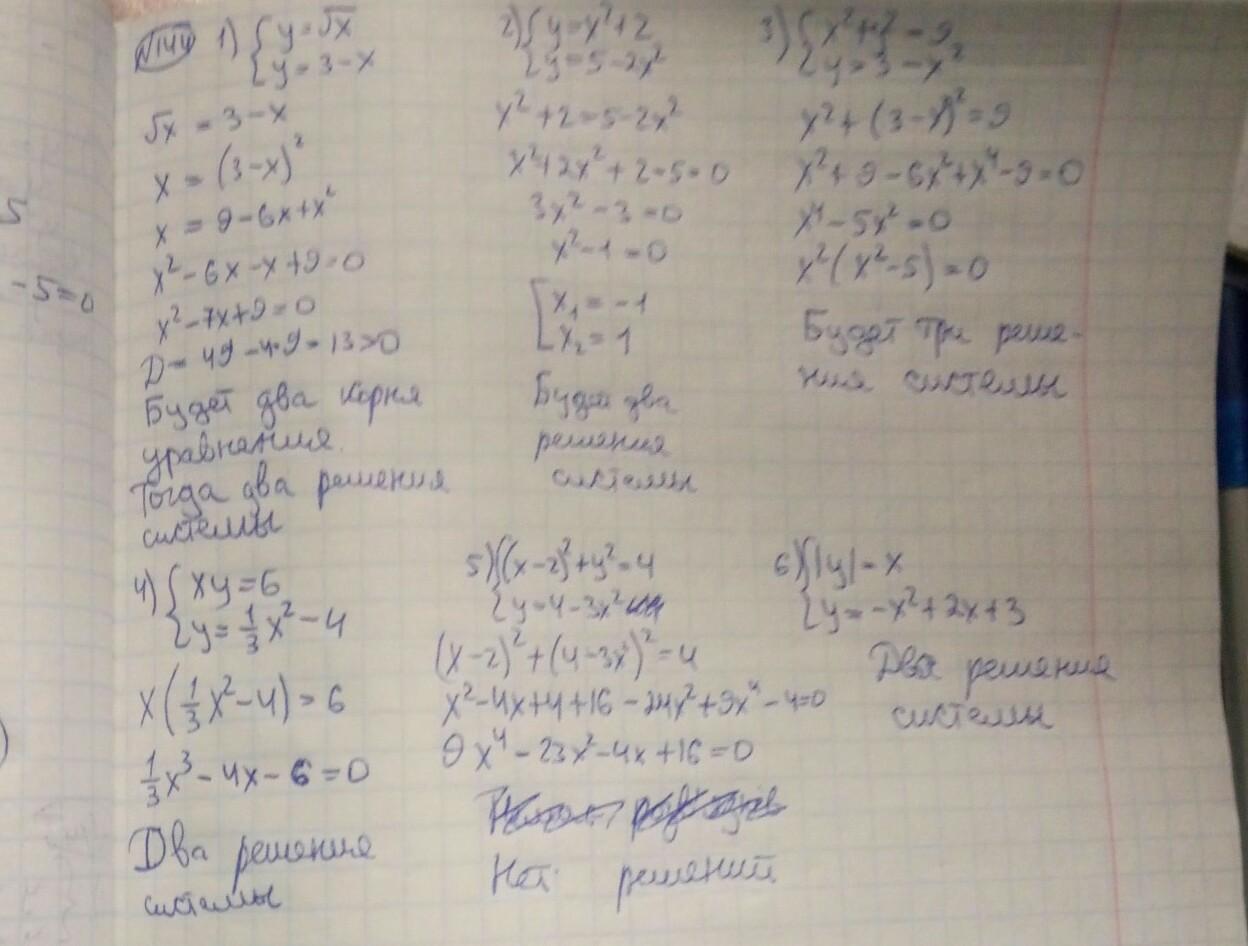 №144
1) { y = √x
{ y = 3 - x
√x = 3 - x
x = (3 - x)²
x = 9 - 6x + x²
x² - 6x - x + 9 = 0
x² - 7x + 9 = 0
D = 49 - 4·9 = 13 > 0
Будет два корня
уравнения.
Тогда два решения
системы
2) { y = x² + 2
{ y = 5 - 2x²
x² + 2 = 5 - 2x²
x² + 2x² + 2 - 5 = 0
3x² - 3 = 0
x² - 1 = 0
[ x₁ = -1
[ x₂ = 1
Будет два
решения
системы
3) { x² + y² = 9
{ y = 3 - x²
x² + (3 - x²)² = 9
x² + 9 - 6x² + x⁴ - 9 = 0
x⁴ - 5x² = 0
x²(x² - 5) = 0
Будет три реше-
ния системы
4) { xy = 6
{ y = 1/3 x² - 4
x(1/3 x² - 4) = 6
1/3 x³ - 4x - 6 = 0
Два решения
системы
5) { (x - 2)² + y² = 4
{ y = 4 - 3x²
(x - 2)² + (4 - 3x²)² = 4
x² - 4x + 4 + 16 - 24x² + 9x⁴ - 4 = 0
9x⁴ - 23x² - 4x + 16 = 0
Нет решений
6) { |y| = x
{ y = -x² + 2x + 3
Два решения
системы
5
-5=0